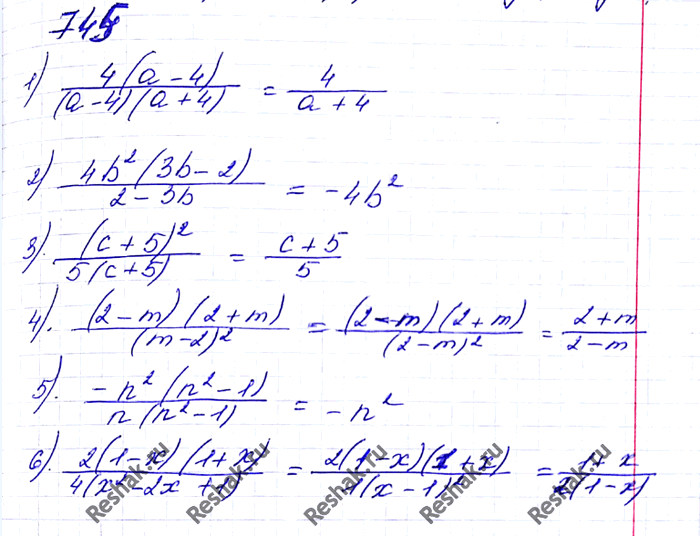 745
1) 4(a-4) / (a-4)(a+4) = 4 / a+4
2) 4b²(3b-2) / 2-3b = -4b²
3) (c+5)² / 5(c+5) = c+5 / 5
4). (2-m)(2+m) / (m-2)² = (2-m)(2+m) / (2-m)² = 2+m / 2-m
5). -n²(n²-1) / n(n²-1) = -n²
6). 2(1-x)(1+x) / 4(x²-2x+1) = 2(1-x)(1+x) / 4(x-1)² = 1+x / 2(1-x)
Reshak.ru Reshak.ru Reshak.ru Reshak.ru Reshak.ru